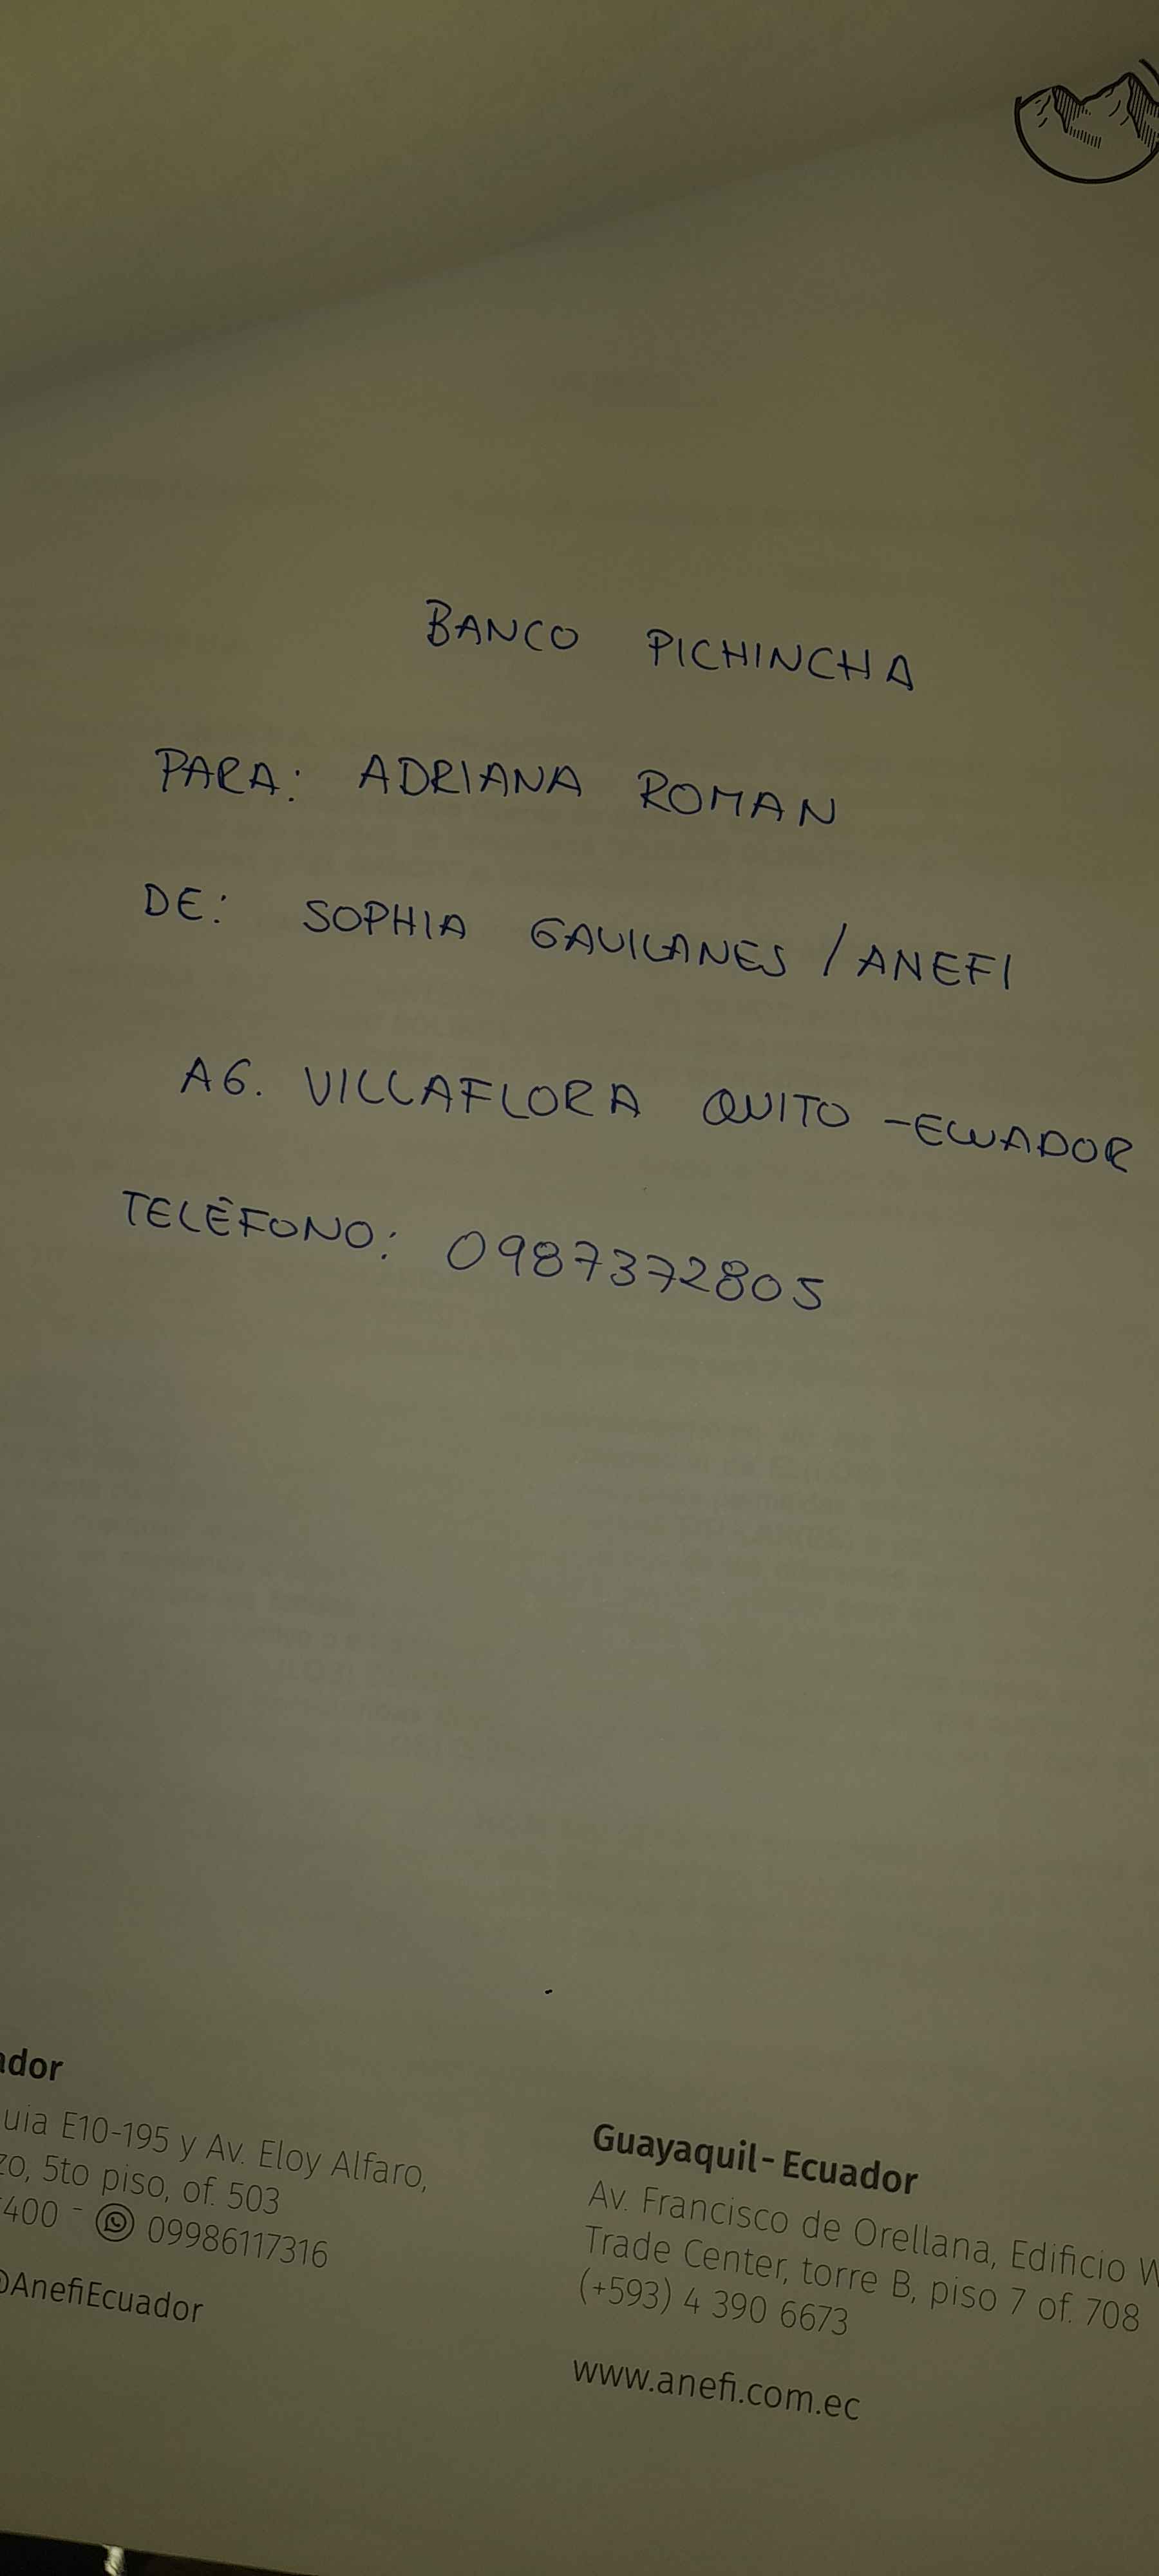 BANCO PICHINCHA
PARA: ADRIANA ROMAN
DE: SOPHIA GAVILANES / ANEFI
AG. VILLAFLORA QUITO - ECUADOR
TELÉFONO: 0987372805
ador
uia E10-195 y Av. Eloy Alfaro,
zo, 5to piso, of. 503
400 - 09986117316
@AnefiEcuador
Guayaquil - Ecuador
Av. Francisco de Orellana, Edificio W
Trade Center, torre B, piso 7 of. 708
(+593) 4 390 6673
www.anefi.com.ec